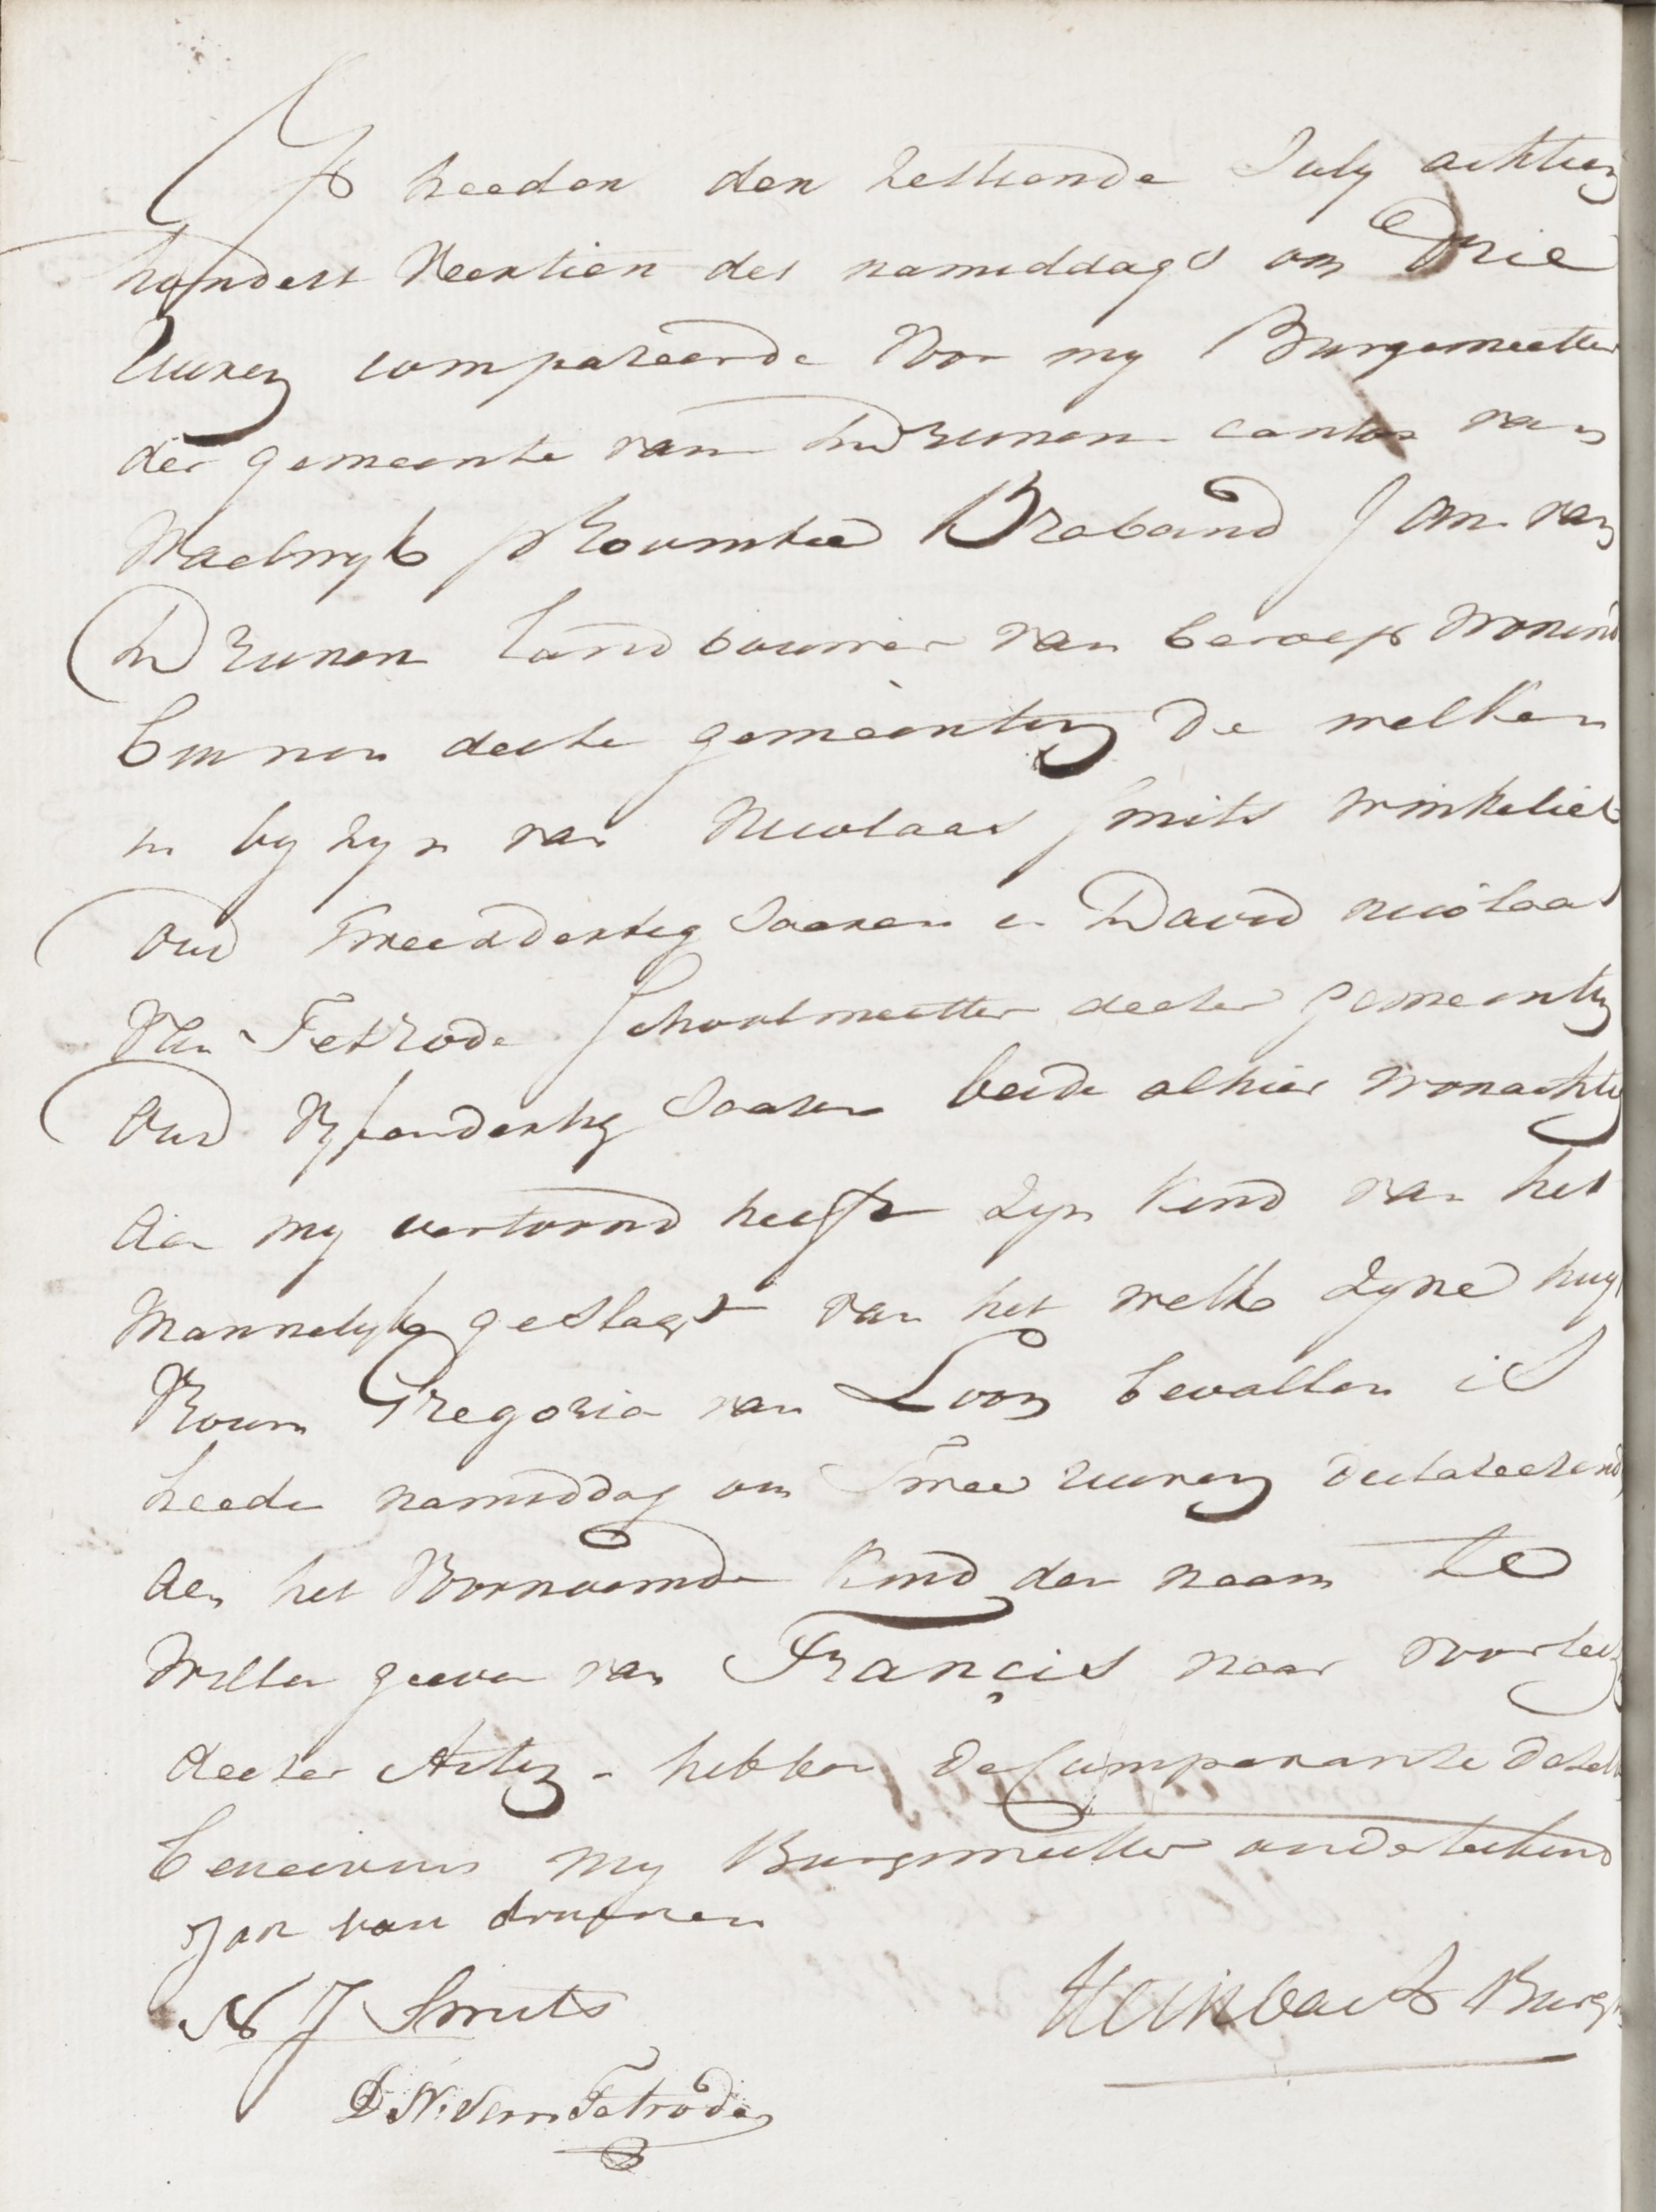 Op heeden den zestiende July achtien
hondert Veertien des namiddags om Drie
Uuren compareerde Voor my Burgemeester
der gemeente van Drunen canton van
Waelwyk provintie Braband Jan van
Drunen Landbouwer van beroep wonend
binnen deese gemeenten de welken
in by zyn van Nicolaas Smits winkelier
Oud Twee Dertig Jaaren en David nicolaas
Van Tetrode Schoolmeester deeser gemeenten
Oud Vyfendertig Jaaren beide alhier wonachtig
Aan my vertoond heeft zyn kind van het
Mannelyk geslagt van het welk zyne huys
Vrouw Gregoria van Loon bevallen is
heede namiddag om Twee uuren declareerend
Aen het Voornoemde kind den naam te
Willen geeven van Francis naar voorlees
deeser Acten - hebben de Comparante deselve
beneevens my Burgemeester onderteekend
Jan van drunen
N J Smits
D. N. van Tetrode
Burgr